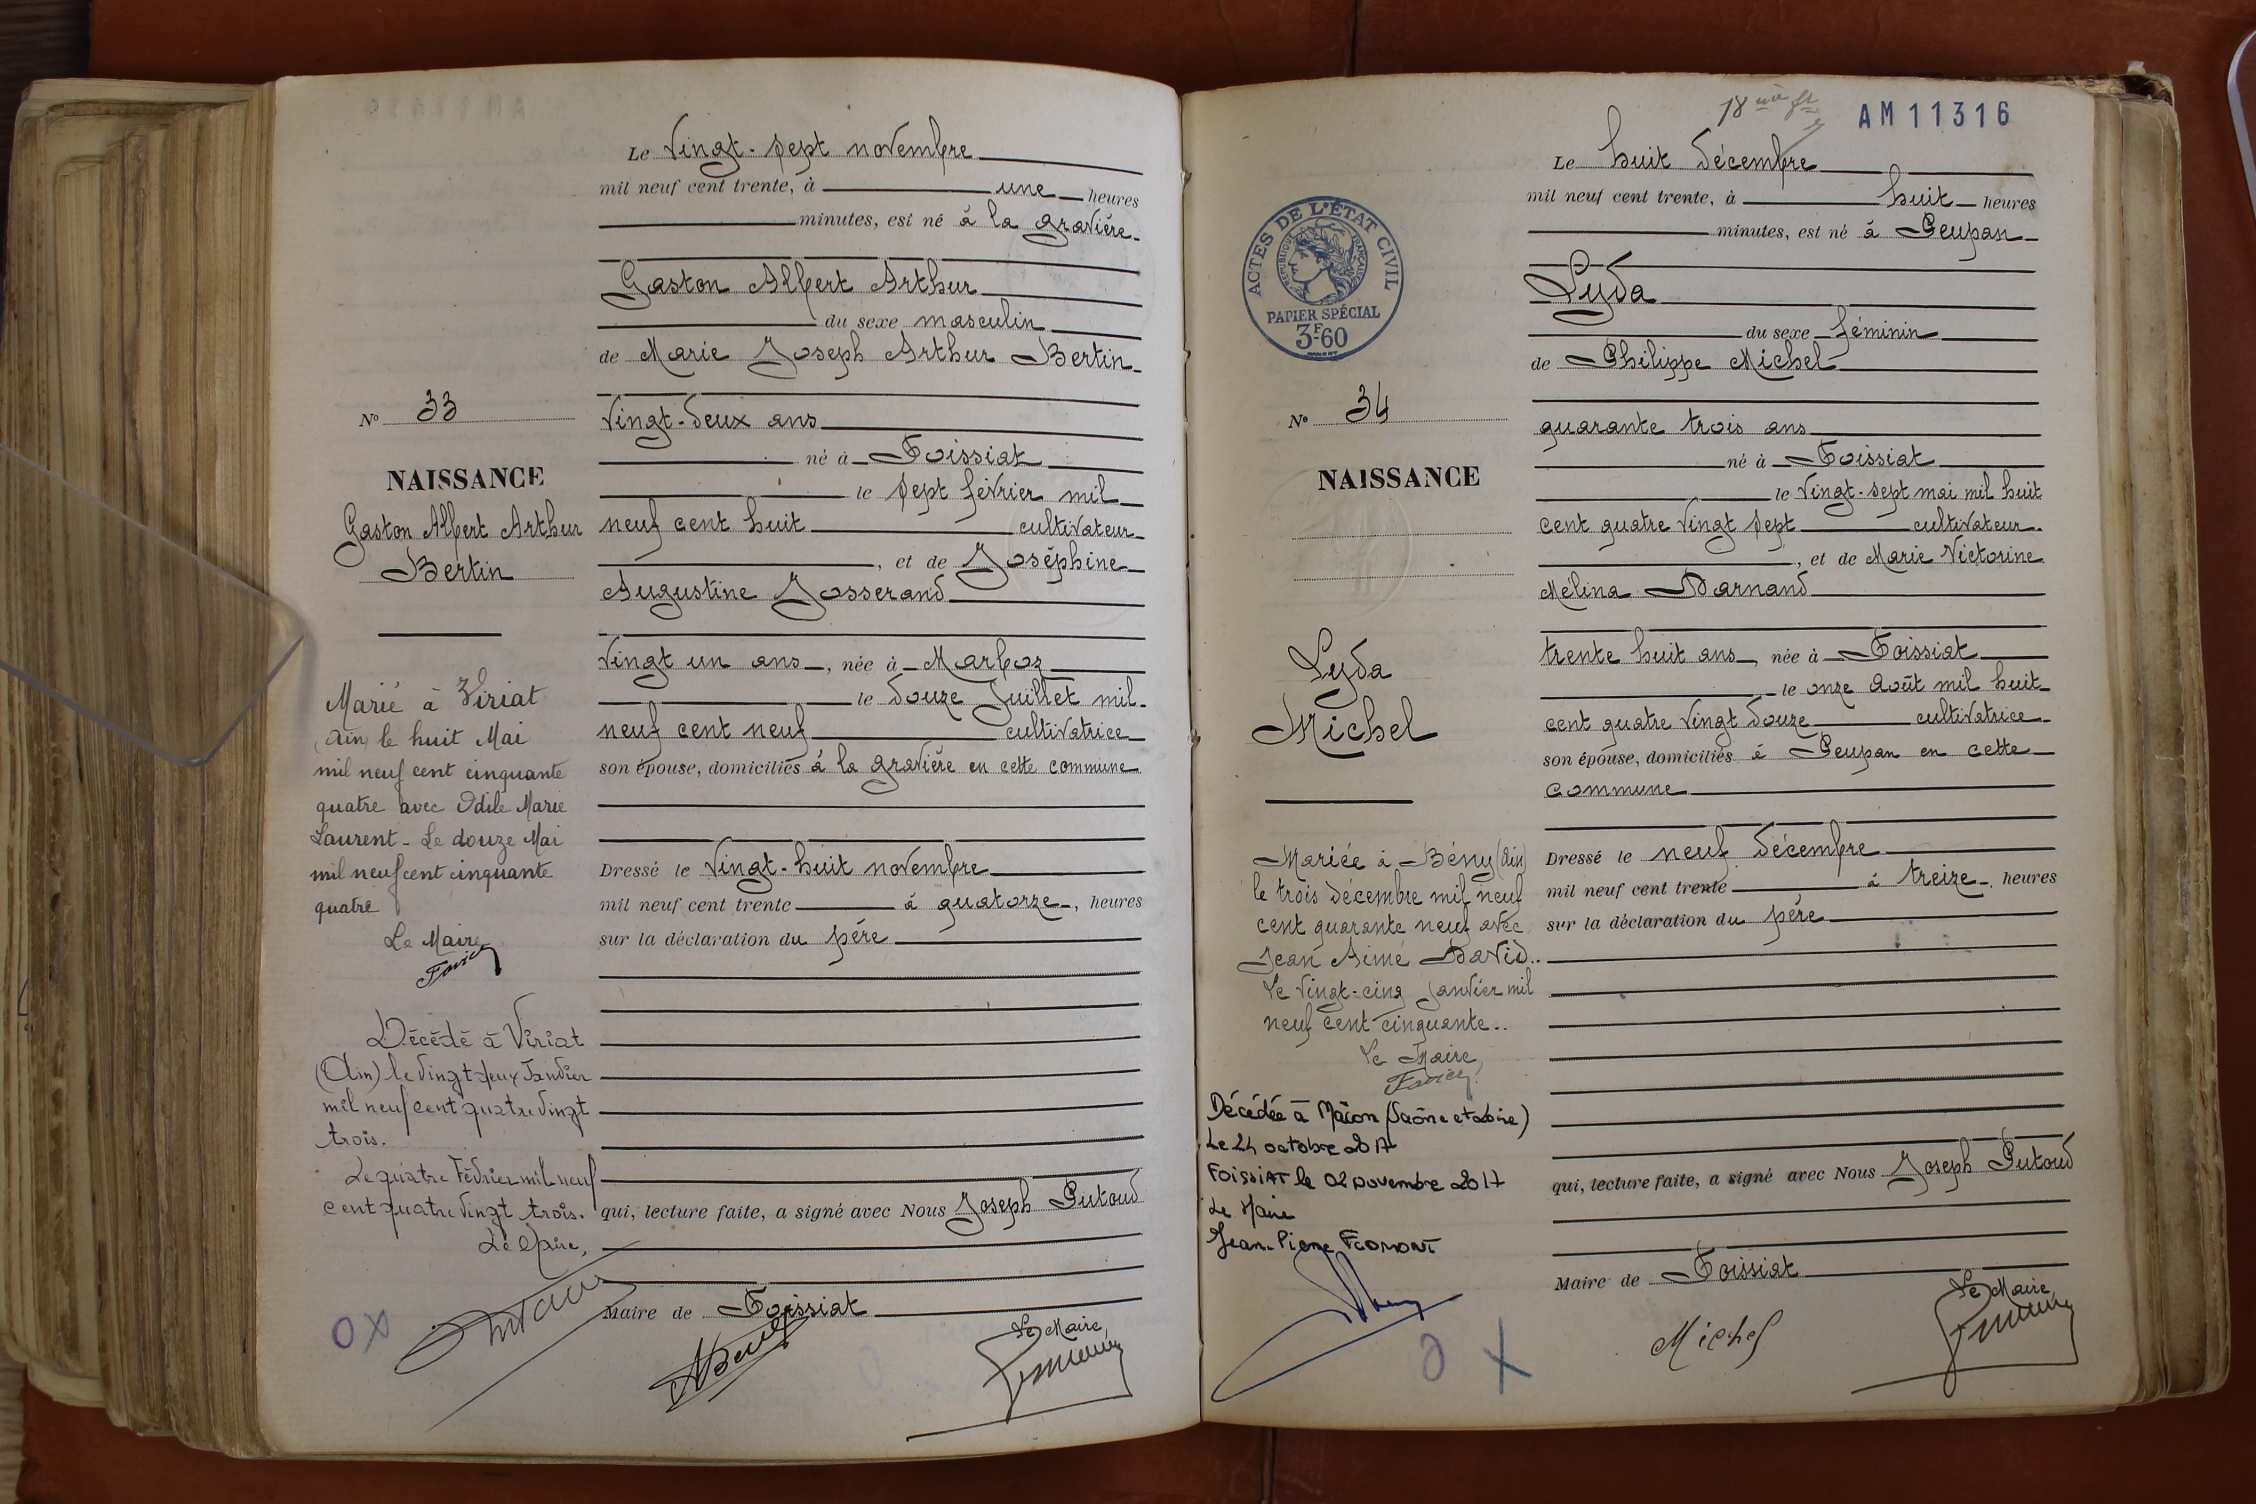 Le vingt-sept novembre
mil neuf cent trente, à une heures
minutes, est né à la gravière
Gaston Albert Arthur
du sexe masculin
de Marie Joseph Arthur Bertin
vingt-deux ans
né à Foissiat
le sept février mil
neuf cent huit cultivateur
, et de Joséphine
Augustine Josserand
vingt un ans, née à Marboz
le douze Juillet mil
neuf cent neuf cultivatrice
son épouse, domiciliés à la gravière en cette commune
Dressé le vingt-huit novembre
mil neuf cent trente à quatorze, heures
sur la déclaration du père
qui, lecture faite, a signé avec Nous Joseph Putoud
Maire de Foissiat
Le Maire,
No 33
NAISSANCE
Gaston Albert Arthur
Bertin
Marié à Viriat
(Ain) le huit Mai
mil neuf cent cinquante
quatre avec Odile Marie
Laurent - Le douze Mai
mil neuf cent cinquante
quatre
Le Maire
Décédé à Viriat
(Ain) le vingt deux Janvier
mil neuf cent quatre vingt
trois.
Le quatre Février mil neuf
cent quatre vingt trois.
Le Maire,
OX
18
AM11316
Le huit décembre
mil neuf cent trente, à huit heures
minutes, est né à Peupan
Lyda
du sexe féminin
de Philippe Michel
quarante trois ans
né à Foissiat
le vingt-sept mai mil huit
cent quatre vingt sept cultivateur
, et de Marie Victorine
Mélina Darnand
trente huit ans, née à Foissiat
le onze août mil huit
cent quatre vingt douze cultivatrice
son épouse, domiciliés à Peupan en cette
commune
Dressé le neuf décembre
mil neuf cent trente à treize, heures
sur la déclaration du père
qui, lecture faite, a signé avec Nous Joseph Putoud
Maire de Foissiat
Le Maire,
Michel
ACTES DE L'ÉTAT CIVIL
RÉPUBLIQUE FRANÇAISE
PAPIER SPÉCIAL
3F60
No 34
NAISSANCE
Lyda
Michel
Mariée à Bény (Ain)
le trois décembre mil neuf
cent quarante neuf avec
Jean Aimé David..
Le vingt-cinq janvier mil
neuf cent cinquante..
Le Maire,
Décédée à Mâcon (Saône et Loire)
Le 24 octobre 2017
FOISSIAT le 02 novembre 2017
Le Maire
Jean-Pierre FROMONT
O X